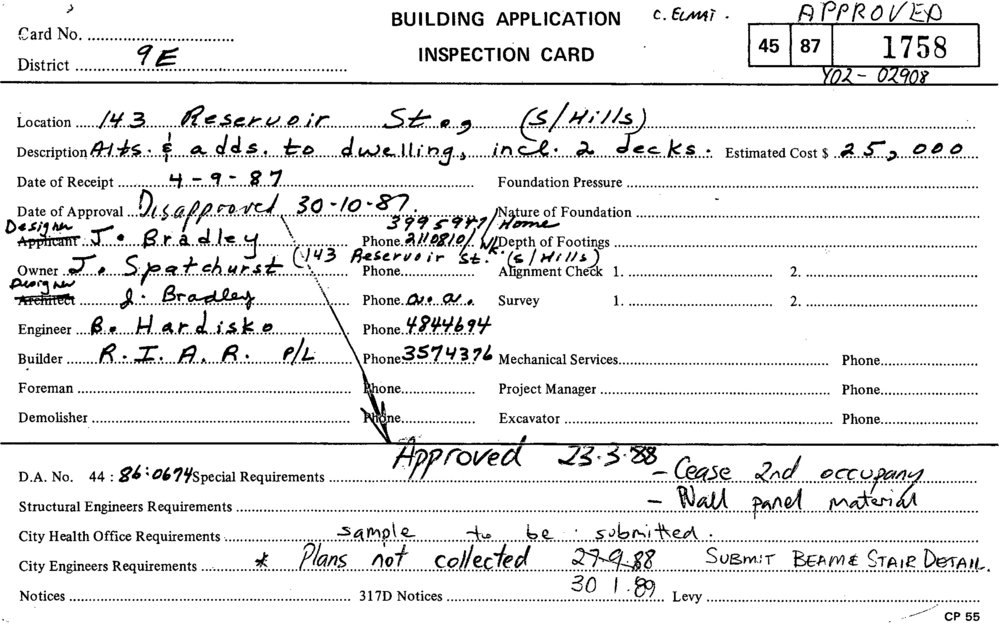 BUILDING APPLICATION C. ELMAI. APPROVED
Card No.
INSPECTION CARD 45 87 1758
District 9E
Y02 - 02908
Location 143 Reservoir St., (S/Hills)
Description Alts. & adds. to dwelling, incl. 2 decks. Estimated Cost $ 25,000
Date of Receipt 4-9-87 Foundation Pressure
Date of Approval Disapproved 30-10-87. Nature of Foundation
3995947/Home
Designer
Applicant J. Bradley Phone. 2110810/Wk. Depth of Footings
Owner J. Spatchurst (143 Reservoir St. (S/Hills) Phone. Alignment Check 1. 2.
Designer
Architect J. Bradley Phone. a. a. Survey 1. 2.
Engineer B. Hardisko Phone. 4844694
Builder R. I. A. R. P/L Phone. 3574376 Mechanical Services Phone.
Foreman Phone. Project Manager Phone.
Demolisher Phone. Excavator Phone.
Approved 23.3.88
D.A. No. 44 : 86:0674 Special Requirements - Cease 2nd occupany
Structural Engineers Requirements - Wall panel material
City Health Office Requirements sample to be submitted.
City Engineers Requirements * Plans not collected 27-9-88 SUBMIT BEAM & STAIR DETAIL.
Notices 317D Notices 30 1.89 Levy
CP 55